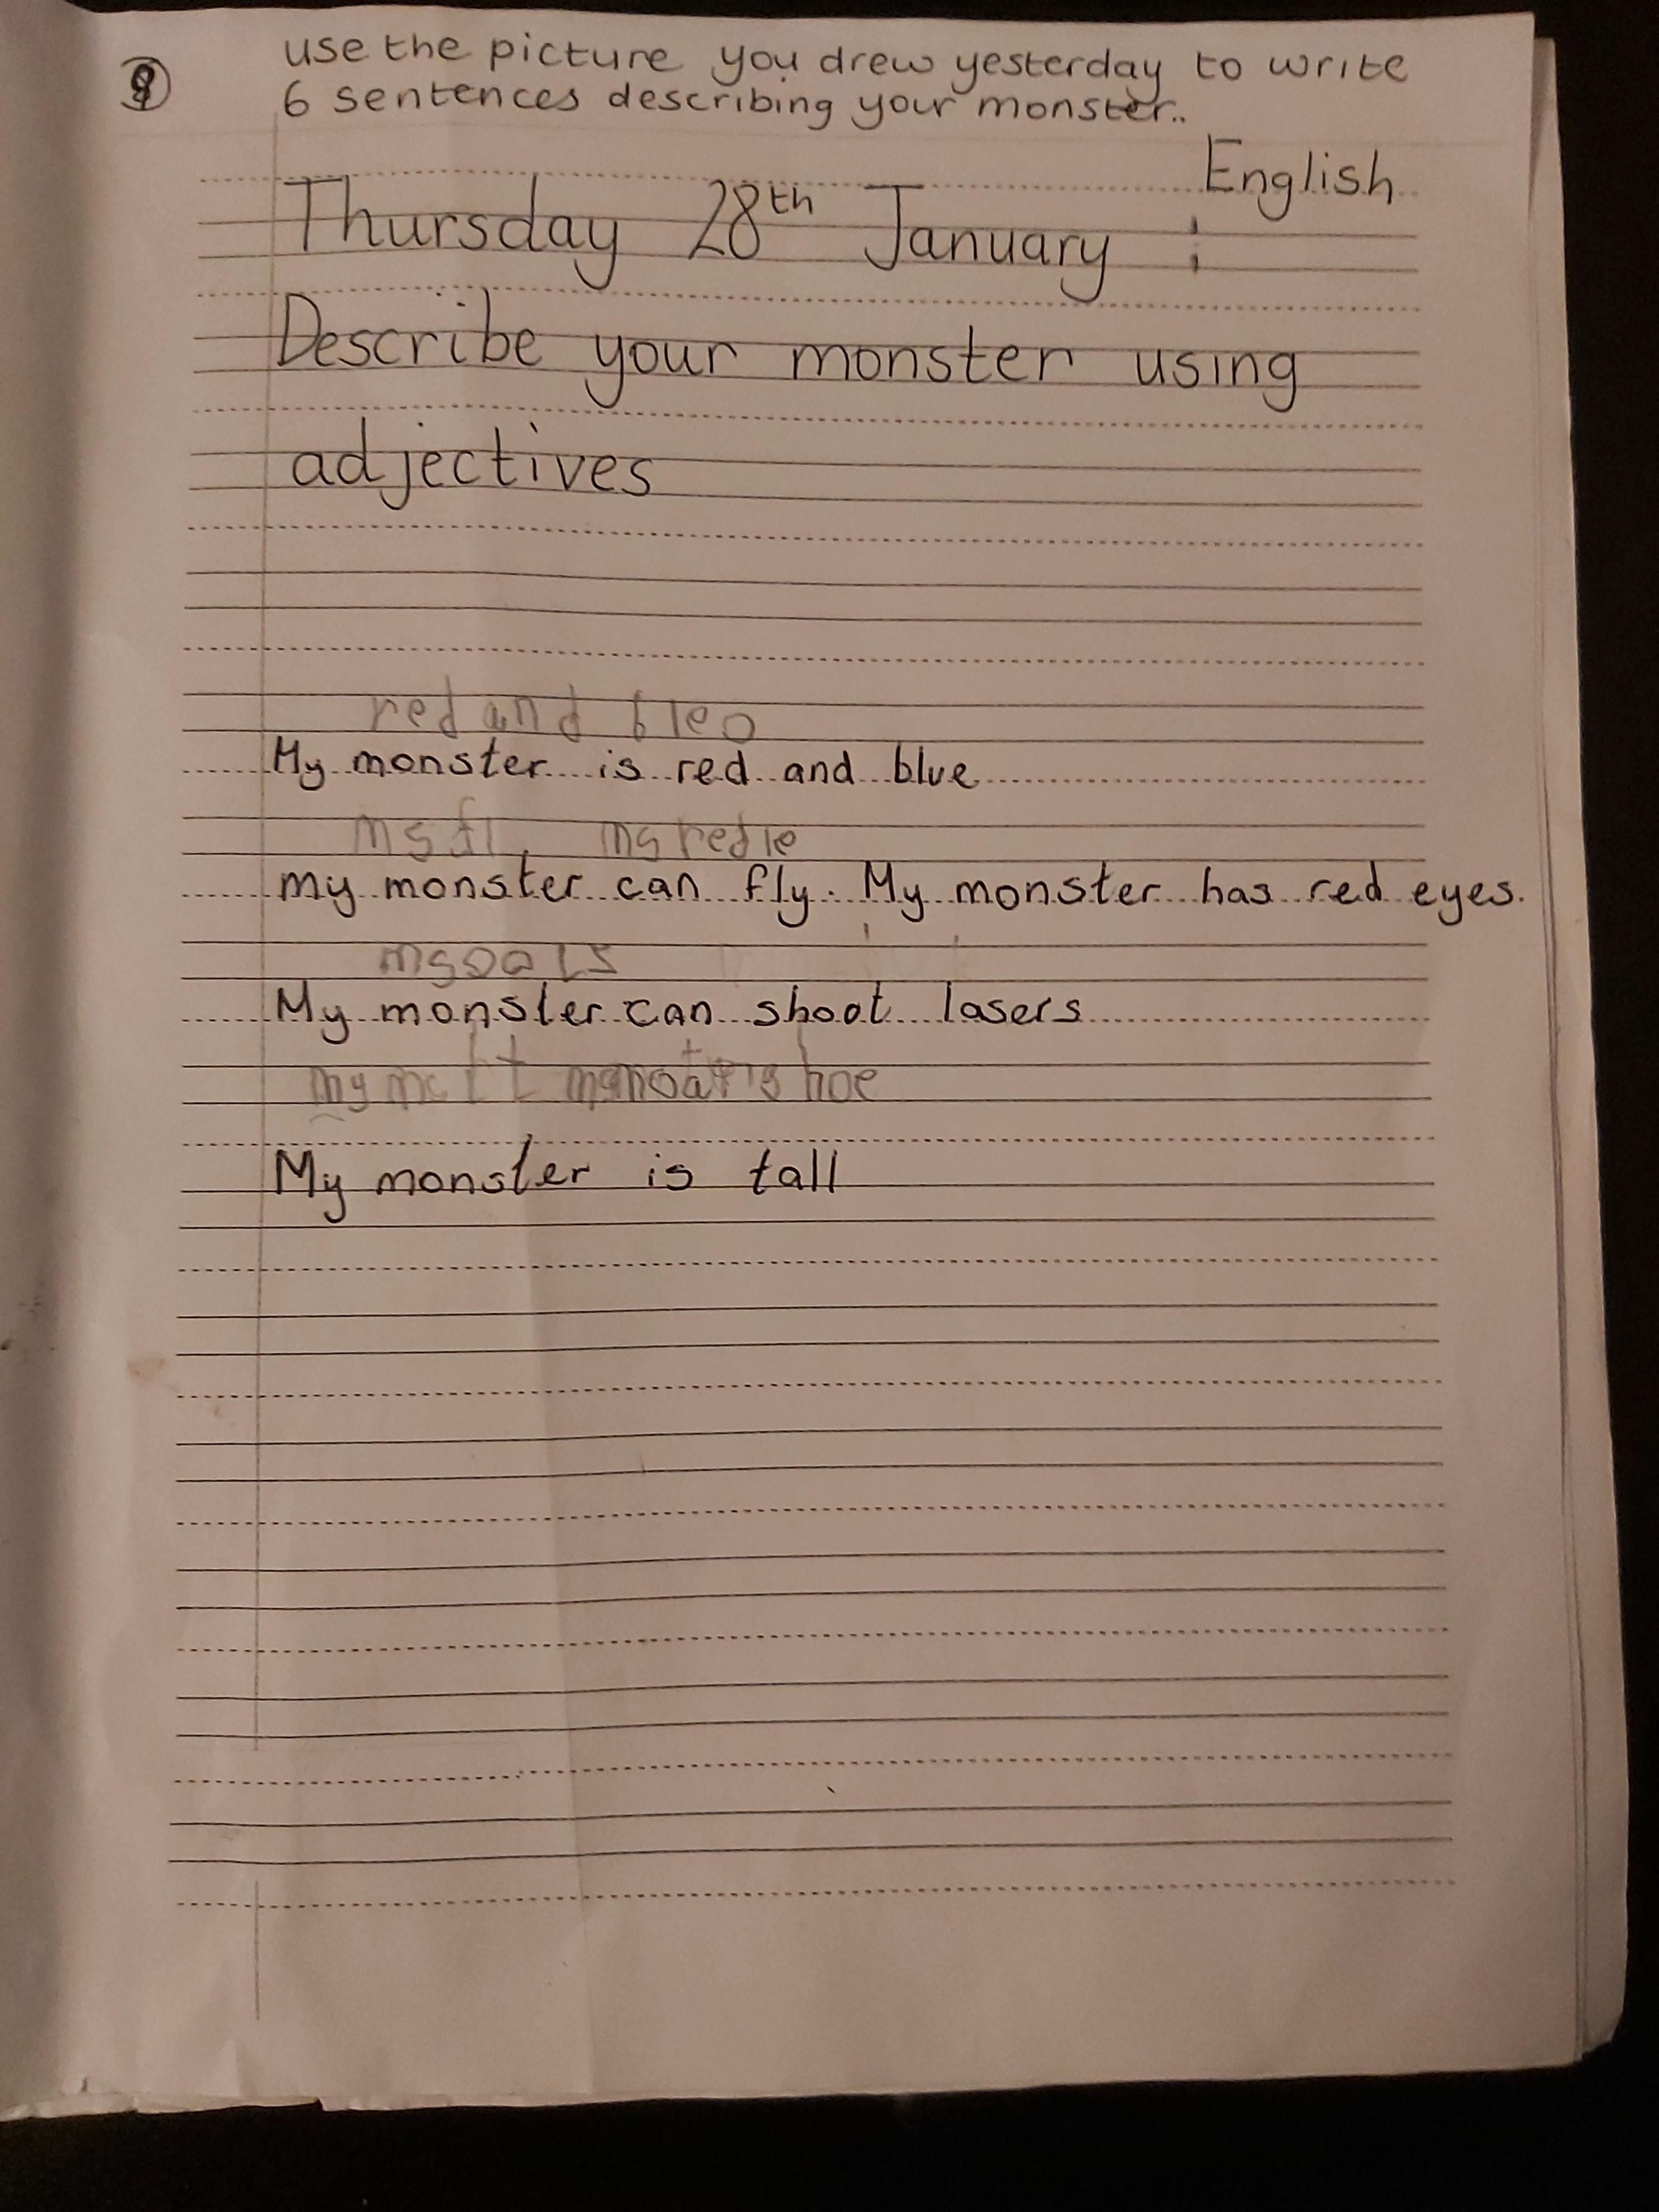 use the picture you drew yesterday to write
6 sentences describing your monster..
English
Thursday 28th January :
Describe your monster using
adjectives
red and bleo
My monster is red and blue
my monster can fly. My monster has red eyes.
My monster can shoot lasers
My monster is tall